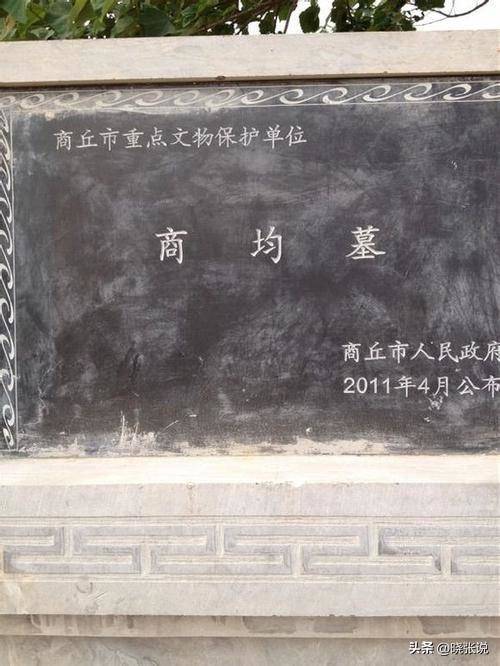 商丘市重点文物保护单位
商均墓
商丘市人民政府
2011年4月公布
头条 @晓张说